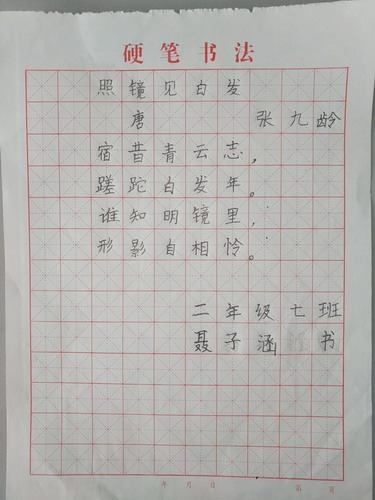 硬笔书法
照镜见白发
唐 张九龄
宿昔青云志，
蹉跎白发年。
谁知明镜里，
形影自相怜。
二年级七班
聂子涵 书
年 月 日 第 页